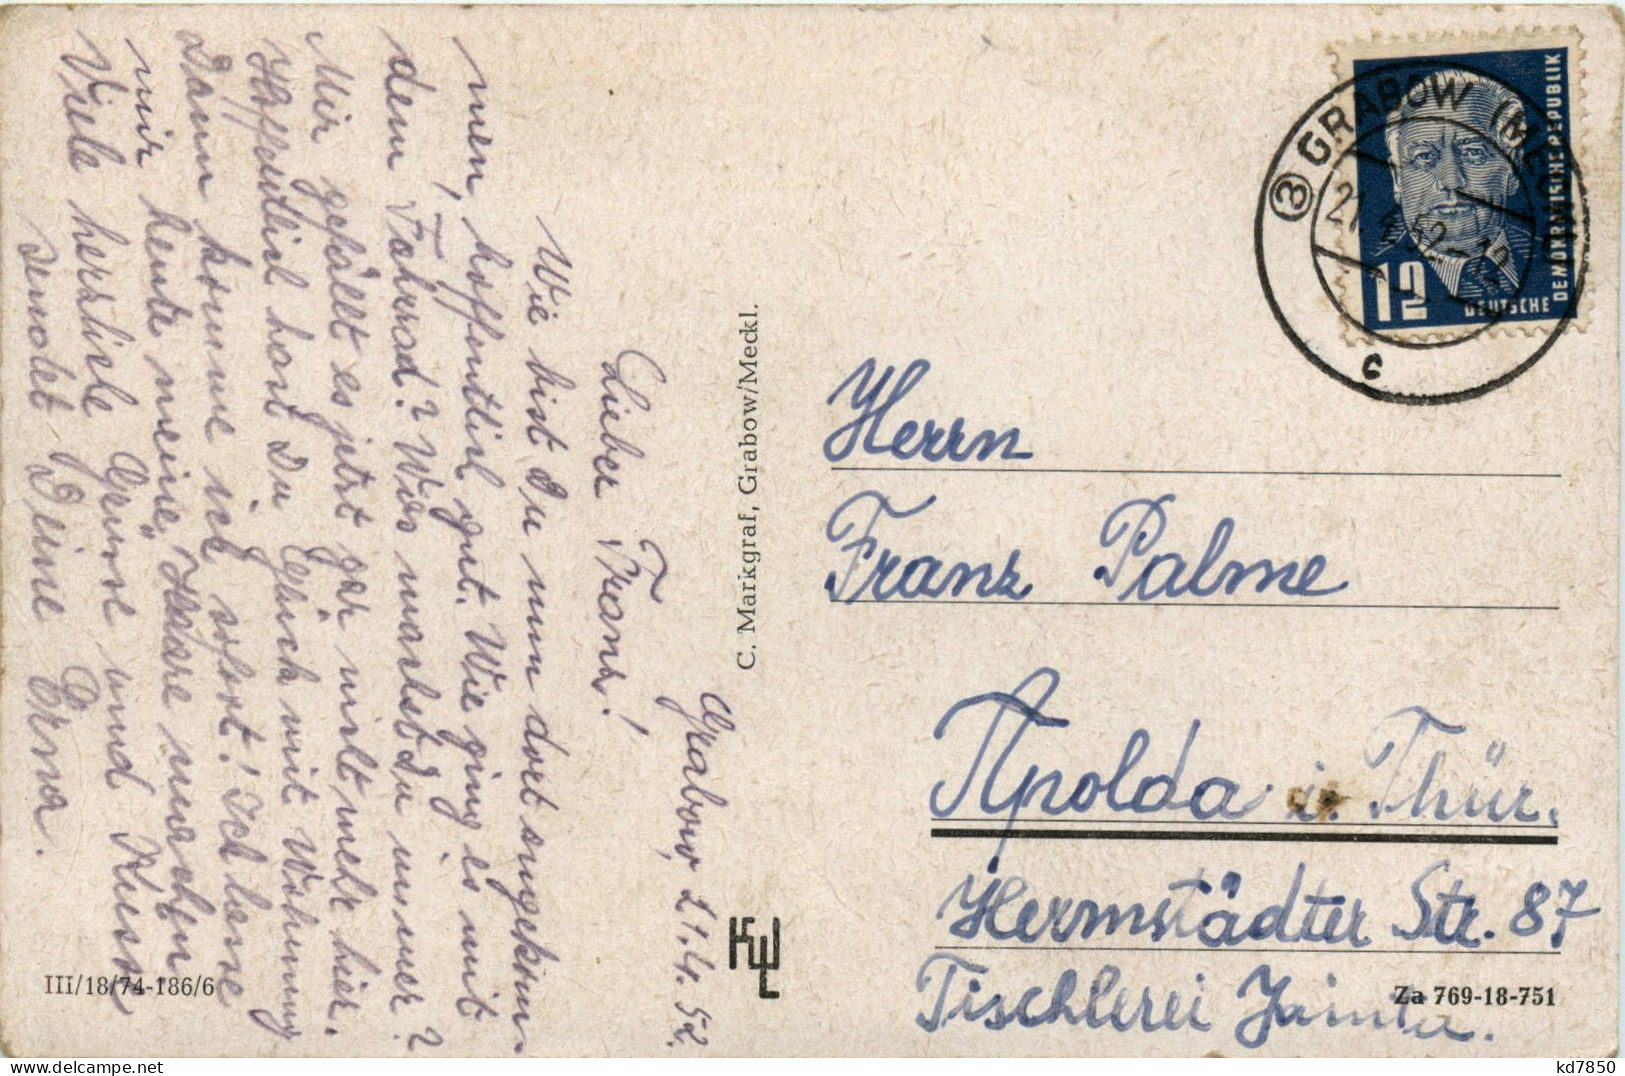 Grabow, 21.4.52.
Lieber Franz!
Wie bist Du nun dort angekom-
men, hoffentlich gut. Wie ging es mit
dem Fahrrad? Was machst Du immer?
Mir gefällt es jetzt gar nicht mehr hier.
Hoffentlich hast Du Glück mit Wohnung
Dann komme ich sofort! Ich lasse
mir heute meine Haare machen
Viele herzliche Grüsse und Küsse
sendet Deine Erna.
C. Markgraf, Grabow/Meckl.
III/18/74-186/6
KWL
GRABOW (MECKL)
21.4.52-12
c
12
DEUTSCHE
DEMOKRATISCHE REPUBLIK
Herrn
Franz Palme
Apolda i. Thür.
Hermstädter Str. 87
Tischlerei
Za 769-18-751
kd7850